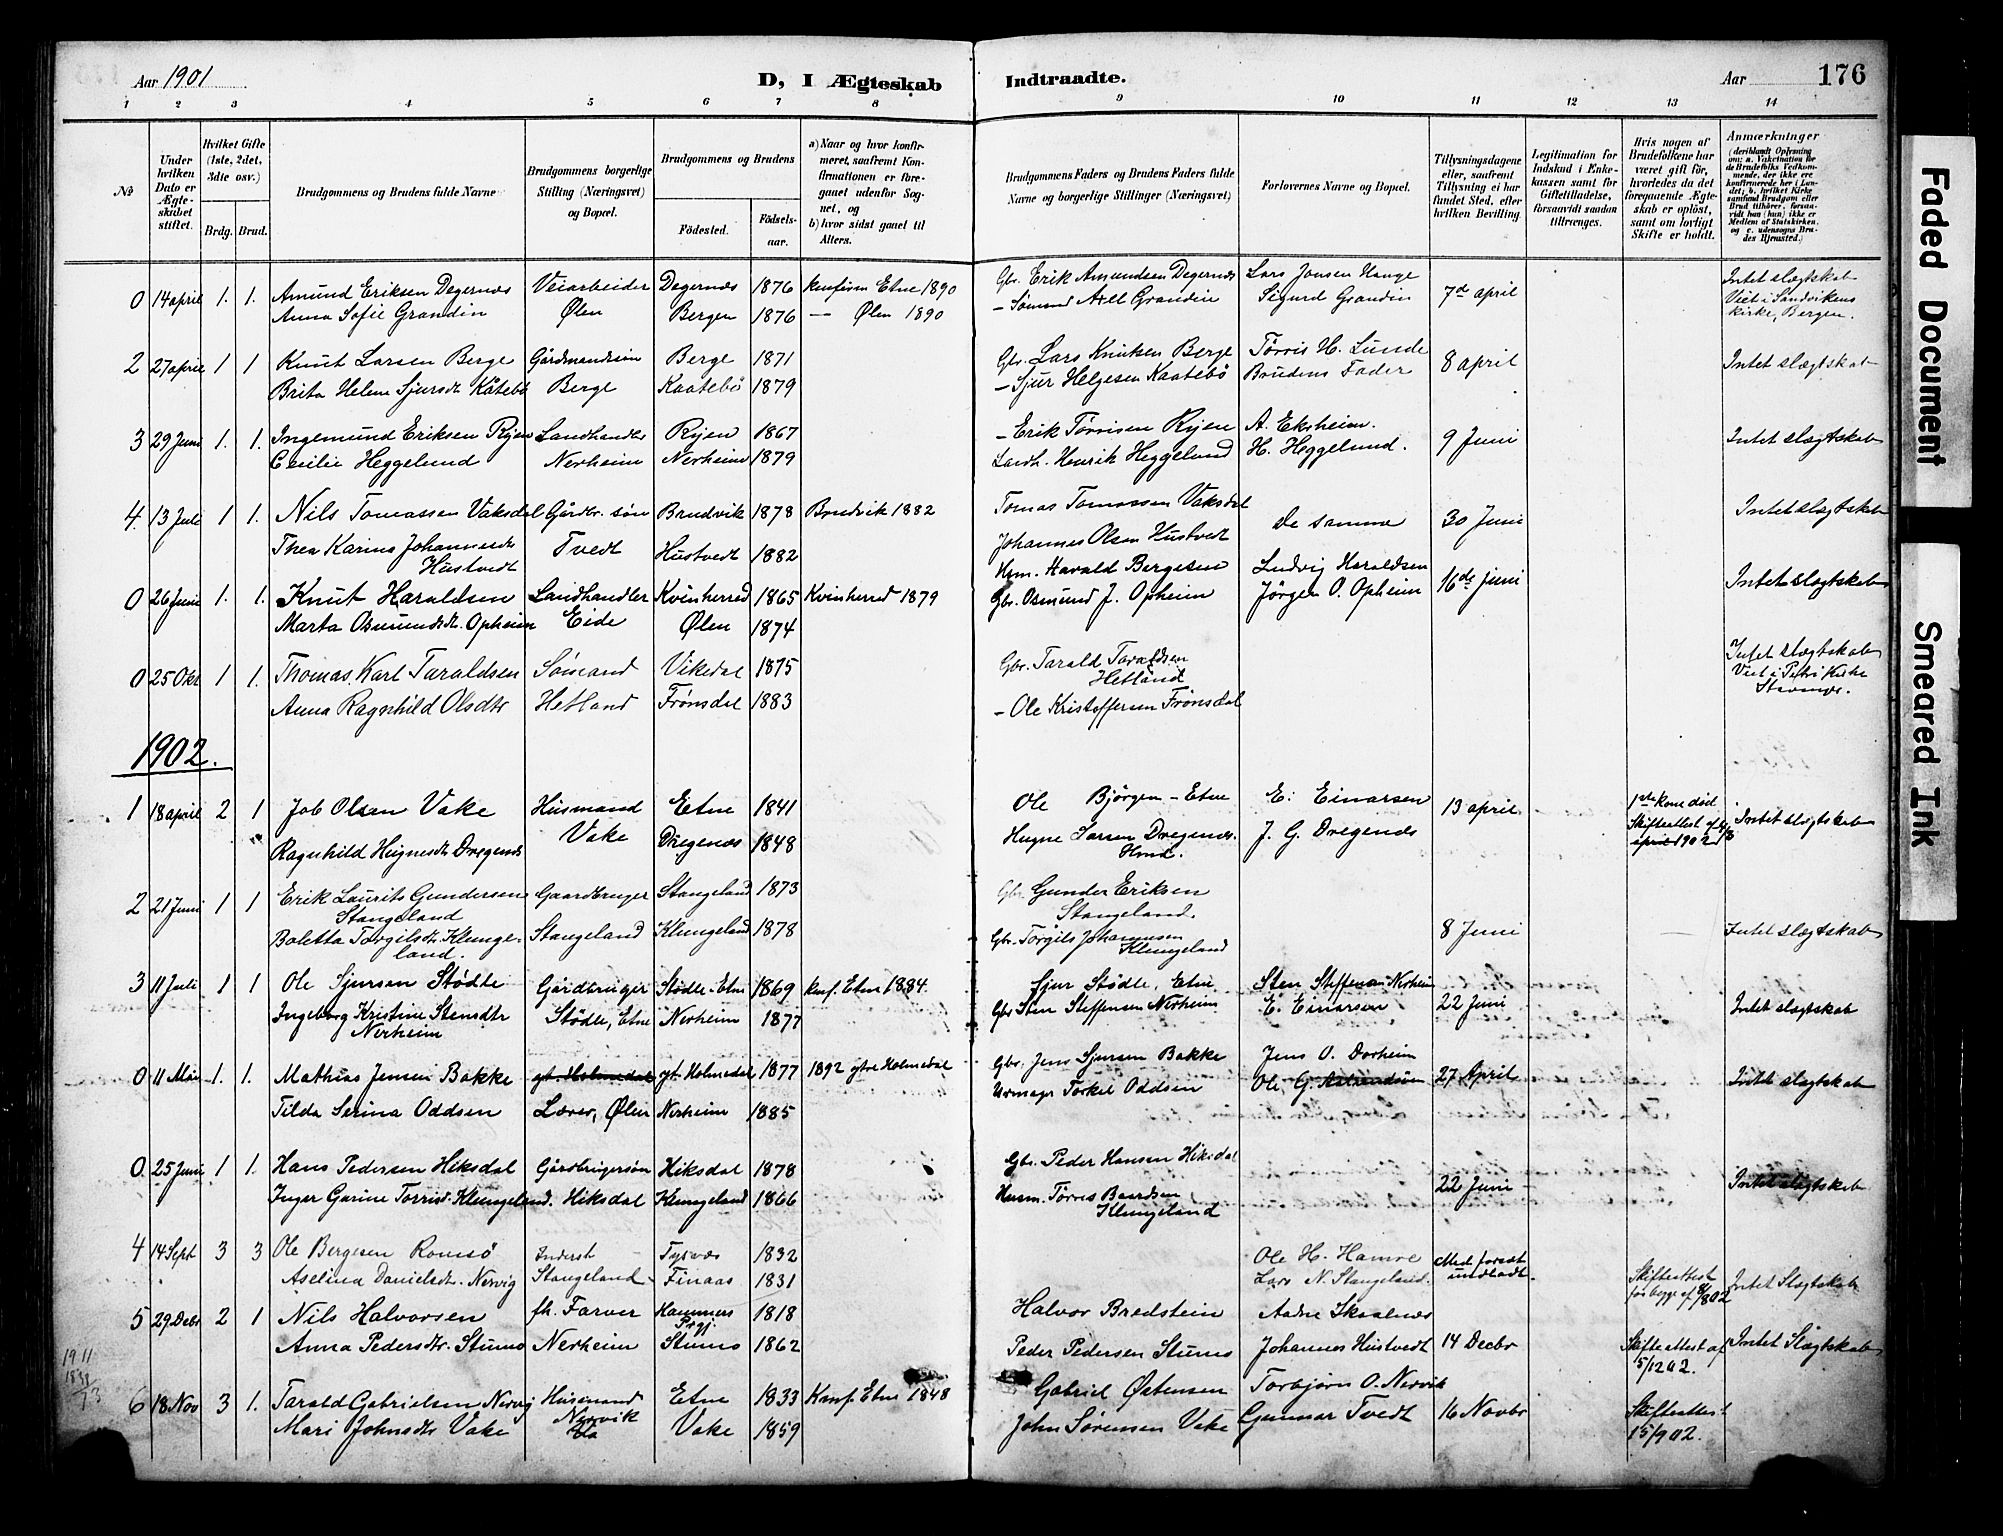 Aar 1901
D, I Ægteskab
Indtraadte.
Aar
176
1 2 3 4 5 6 7 8 9 10 11 12 13 14
No
Under hvilken Dato er Ægteskabet stiftet.
Hvilket Gifte (1ste, 2det, 3die osv.)
Brdg. Brud.
Brudgommens og Brudens fulde Navne
Brudgommens borgerlige Stilling (Næringsvei) og Bopæl.
Brudgommens og Brudens
Fødested.
Fødselsaar.
a) Naar og hvor konfirmeret, saafremt Konfirmationen er foregaaet udenfor Sognet, og
b) hvor sidst gaaet til Alters.
Brudgommens Faders og Brudens Faders fulde Navne og borgerlige Stillinger (Næringsvei)
Forlovernes Navne og Bopæl.
Tillysningsdagene eller, saafremt Tillysning ei har fundet Sted, efter hvilken Bevilling.
Legitimation for Indskud i Enkekassen samt for Giftetilladelse, forsaavidt saadan tiltrænges.
Hvis nogen af Brudefolkene har været gift før, hvorledes da det foregaaende Ægteskab er opløst, samt om lovligt Skifte er holdt.
Anmærkninger
(deriblandt Oplysning om: a. Vakcination for de Brudefolks Vedkommende, der ikke ere konfirmerede her i Landet; b. hvilket Kirkesamfund Brudgom eller Brud tilhører, forsaavidt han (hun) ikke er Medlem af Statskirken, og c. udensogns Brudes Hjemsted.)
0 14 april 1. 1. Amund Eriksen Degernæs Veiarbeider Degernæs 1876 konfirm Etne 1890 Gbr. Erik Amundsen Degernæs Lars Jonsen Hauge 7de april Intet slægtskab
Anna Sofie Grandin Ølen Bergen 1876 — Ølen 1890 - Sømand Axel Grandin Sigurd Grandin Viet i Sandvikens kirke, Bergen.
2 27 april 1 1 Knut Larsen Berge Gårdmandssøn Berge 1871 Gbr. Lars Knutsen Berge Tørris H. Lunde 8 april Intet slægtskab
Brita Helene Sjursdt Kåtebø Berge Kaatebø 1879 - Sjur Helgesen Kaatebø Brudens Fader
3 29 Juni 1. 1. Ingemund Eriksen Ryen Landhandler Ryen 1867 - Erik Tørrisen Ryen A. Eksheim. 9 Juni Intet slægtskab
Cecilie Heggelund Nerheim Nerheim 1879 Landh. Henrik Heggelund H. Heggelund.
4. 13 Juli 1 1. Nils Tomassen Vaksdal Gårdbr. søn Brudvik 1878 Brudvik 1882 Tomas Tomassen Vaksdal De samme 30 Juni Intet slægtskab
Thea Karina Johannesdt Hustvedt Tvedt Hustvedt 1882 Johannes Olsen Hustvedt
0 26 Juni 1. 1. Knut Haraldsen Landhandler Kvinherred 1865 Kvinherred 1879 Hsm. Harald Bergesen Ludvig Haraldsen 16de Juni Intet slægtskab
Marta Osmundsdt. Opheim Eide Ølen 1874 Gbr. Osmund J. Opheim Jørgen O. Opheim
0 25 Okt 1 1. Thomas Karl Taraldsen Sømand Vikedal 1875 Gbr. Tarald Taraldsen Hetland Intet slægtskab
Anna Ragnhild Olsdtr Hetland Frønsdal 1883 - Ole Kristoffersen Frønsdal Viet i Petri Kirke Stavanger.
1902.
1 18 april 2 1 Job Olsen Vake Husmand Etne 1841 Ole Bjørgen - Etne E. Einarsen 13 april 1ste kone død Intet slægtskab
Ragnhild Heignesdt Dregenæs Vake Dregenæs 1848 Hugne Larsen Dregenæs. Hmd. J. G. Dregenæs Skifteattest af april 1902
2 21 Juni 1 1 Erik Laurits Gundersen Stangeland Gaardbruger Stangeland 1873 Gbr. Gunder Eriksen Stangeland. 8 Juni Intet slægtskab
Boletta Torgilsdt. Klungeland. Stangeland Klungeland 1878 Gbr. Torgils Johannesen Klungeland
3 11 Juli 1 1 Ole Sjursen Stødle Gårdbruger Stødle - Etne 1869 konf. Etne 1884. Sjur Stødle, Etne Sten Steffensen Nerheim 22 Juni Intet slægtskab
Ingeborg Kristine Stensdtr Nerheim Stødle, Etne Nerheim 1877 Gbr Sten Steffensen Nerheim E. Einarsen
0 11 Mai 1. 1. Mathias Jensen Bakke yt. Holmedal yt. Holmedal 1877 1892 ytre Holmedal Gbr. Jens Sjursen Bakke Jens O. Dorheim 27 April Intet slægtskab
Tilda Serina Oddsen Lærer, Ølen Nerheim 1885 Urmager Torkel Oddsen Ole G.
0. 25 Juni 1 1. Hans Pedersen Hiksdal Gårdbrugersøn Hiksdal 1878 Gbr. Peder Hansen Hiksdal 22 Juni Intet slægtskab
Inger Gurine Torrisd. Klungeland. Hiksdal Klungeland 1866 Husm. Tørres Baardsen Klungeland
4 14 Sept 3 3 Ole Bergesen Romsø Inderst Tysvær 1832 Ole H. Hamre Med forsæt undladt. Skifteattest for begge af Intet Slægtskab
Aselina Danielsdt. Nervig Stangeland Finaas 1831 Lars N. Stangeland.
5 29 Debr 2 1 Nils Halvorsen fh. Farver Hammers Prgj 1818 Halvor Bredstein Aadne Skaalnes 14 Decbr Skifteattest af 15/1202. Intet Slægtskab
Anna Pedersdtr. Stumo Nerheim Stumo 1862 Peder Pedersen Stumo Johannes Hustvedt
1911
6 18 Nov 3 1. Tarald Gabrielsen Nervig Husmand Etne 1833 Konf. Etne 1848 Gabriel Østensen Torbjørn O. Nervik 16 Novbr Skifteattest 15/902.
Mari Johnsdtr Vake Nervik Vake 1859 John Sørensen Vake Gunnar Tvedt
Faded Document
Smeared Ink